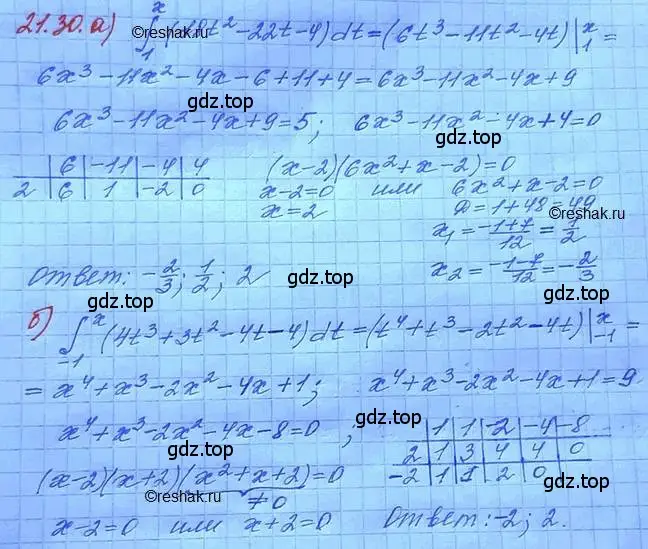 21.30. а) ∫₁ˣ (18t²-22t-4)dt=(6t³-11t²-4t)|₁ˣ=
©reshak.ru
6x³-11x²-4x-6+11+4=6x³-11x²-4x+9
gdz.top
6x³-11x²-4x+9=5; 6x³-11x²-4x+4=0
gdz.top
| 6 | -11 | -4 | 4
2 | 6 | 1 | -2 | 0
(x-2)(6x²+x-2)=0
x-2=0 или 6x²+x-2=0
x=2 D=1+48=49
©reshak.ru
x₁=(-1+7)/12=1/2
x₂=(-1-7)/12=-2/3
Ответ: -2/3; 1/2; 2
gdz.top
gdz.top
б) ∫₋₁ˣ (4t³+3t²-4t-4)dt=(t⁴+t³-2t²-4t)|₋₁ˣ=
gdz.top
=x⁴+x³-2x²-4x+1; x⁴+x³-2x²-4x+1=9
gdz.top
x⁴+x³-2x²-4x-8=0;
| 1 | 1 | -2 | -4 | -8
2 | 1 | 3 | 4 | 4 | 0
-2 | 1 | 1 | 2 | 0
©reshak.ru
gdz.top
(x-2)(x+2)(x²+x+2)=0
©reshak.ru
≠0
gdz.top
x-2=0 или x+2=0 Ответ: -2; 2.